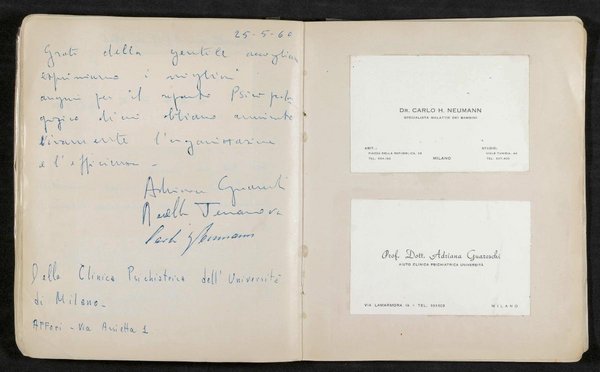 25-5-60
Grati della gentile accoglienza
esprimiamo i migliori
auguri per il reparto Psicopeda
gogico di cui abbiamo ammirato
vivamente l'organizzazione
e l'efficienza -
Adriana Guareschi
Terranova
Carlo Neumann
Della Clinica Psichiatrica dell'Università
di Milano -
Affori - Via Assietta 1
DR. CARLO H. NEUMANN
SPECIALISTA MALATTIE DEI BAMBINI
ABIT.:
PIAZZA DELLA REPUBBLICA,
TEL.
MILANO
STUDIO:
VIALE TUNISIA,
TEL.
Prof. Dott. Adriana Guareschi
AIUTO CLINICA PSICHIATRICA UNIVERSITÀ
VIA LAMARMORA - TEL.
MILANO